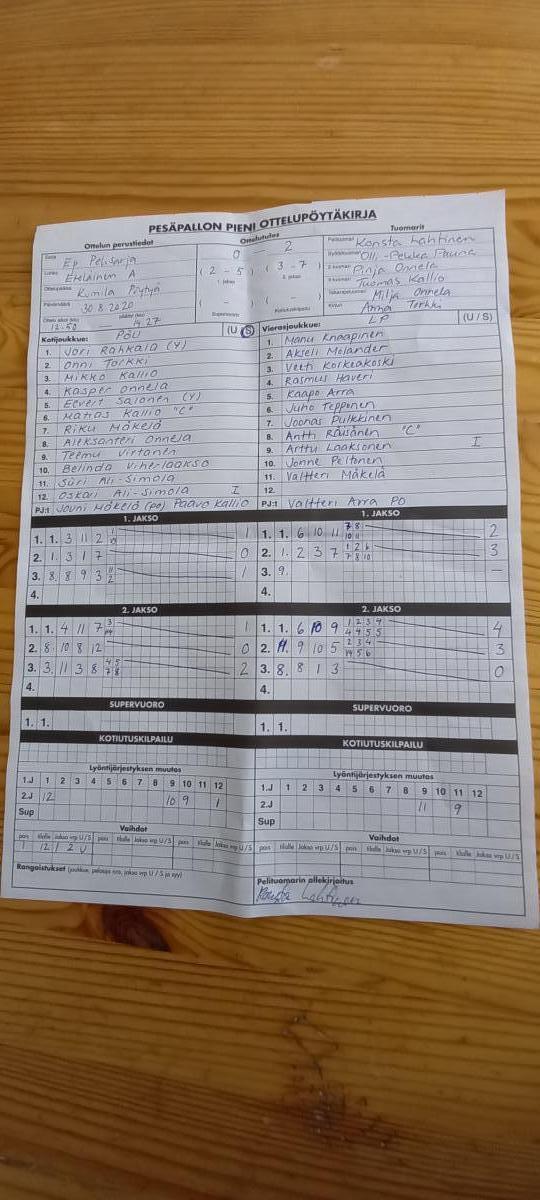 PESÄPALLON PIENI OTTELUPÖYTÄKIRJA
Ottelun perustiedot
Ottelutulos
Tuomarit
Ep Pelisarja
Eteläinen A
Kumila Pöytyä
30.8.2020
12.50 — 14.27
0 — 2
( 2 - 5 ) ( 3 - 7 )
1. jakso 2. jakso
( - ) ( - )
Supervuoro Kotiutuskilpailu
Pelituomari Konsta Lahtinen
Olli-Pekka Fauna
Pinja Onnela
Tuomas Kallio
Milja Onnela
Anna Torkki
Kotijoukkue: PöU (U / S)
1. Jori Rahkala (Y)
2. Onni Torkki
3. Mikko Kallio
4. Kasper Onnela
5. Eevert Salonen (Y)
6. Matias Kallio "C"
7. Riku Mäkelä
8. Aleksanteri Onnela
9. Teemu Virtanen
10. Belinda Viherlaakso
11. Suri Ali-Simola
12. Oskari Ali-Simola I
PJ:t Jouni Mäkelä (po) Paavo Kallio
Vierasjoukkue: LP (U / S)
1. Manu Knaapinen
2. Akseli Molander
3. Veeti Korkeakoski
4. Rasmus Haveri
5. Kaapo Arra
6. Juho Tepponen
7. Joonas Pulkkinen
8. Antti Räisänen "C"
9. Arttu Laaksonen I
10. Jonne Peltonen
11. Valtteri Mäkelä
12.
PJ:t Valtteri Arra PO
1. JAKSO
1. 1. 3 11 2 1
2. 1. 3 1 7 0
3. 8. 8 9 3 11 2 1
4.
1. JAKSO
1. 1. 6 10 11 7 8 10 11 2
2. 1. 2 3 7 1 2 6 7 8 10 3
3. 9. —
4.
2. JAKSO
1. 1. 4 11 7 3 1
2. 8. 10 8 12 0
3. 3. 11 3 8 4 5 7 8 2
4.
2. JAKSO
1. 1. 6 10 9 1 2 3 4 4 4 5 5 4
2. 11. 9 10 5 2 3 4 3
3. 8. 8 1 3 0
4.
SUPERVUORO
1. 1.
SUPERVUORO
1. 1.
KOTIUTUSKILPAILU
KOTIUTUSKILPAILU
Lyöntijärjestyksen muutos
1.J 1 2 3 4 5 6 7 8 9 10 11 12
2.J 12 10 9 1
Sup
Lyöntijärjestyksen muutos
1.J 1 2 3 4 5 6 7 8 9 10 11 12
2.J 11 9
Sup
Vaihdot
pois tilalle Jakso vrp U / S pois tilalle Jakso vrp U / S pois tilalle Jakso vrp U / S
1 12 2 U
Vaihdot
pois tilalle Jakso vrp U / S pois tilalle Jakso vrp U / S pois tilalle Jakso vrp U / S
Rangaistukset (joukkue, pelaaja nro, jakso vrp U / S ja syy)
Pelituomarin allekirjoitus
Konsta Lahtinen